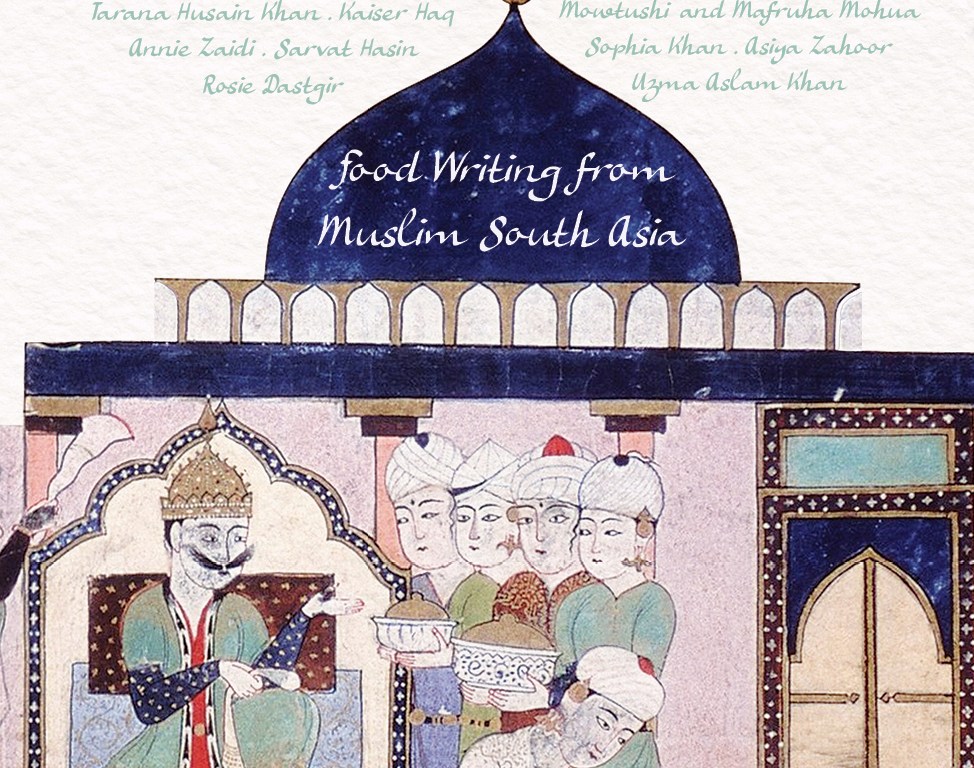 Tarana Husain Khan . Kaiser Haq
Annie Zaidi . Sarvat Hasin
Rosie Dastgir
Mowtushi and Mafruha Mohua
Sophia Khan . Asiya Zahoor
Uzma Aslam Khan
Food Writing from
Muslim South Asia